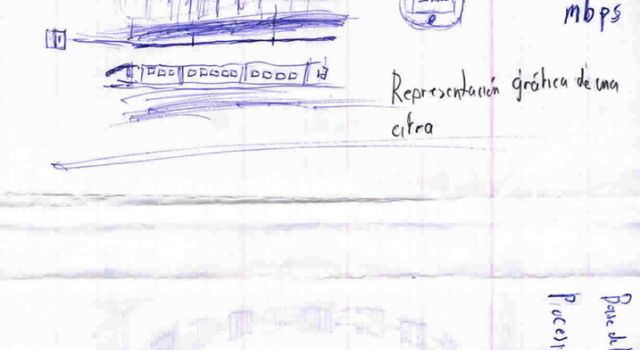 mbps
Representación gráfica de una
citra
Base de
Proces